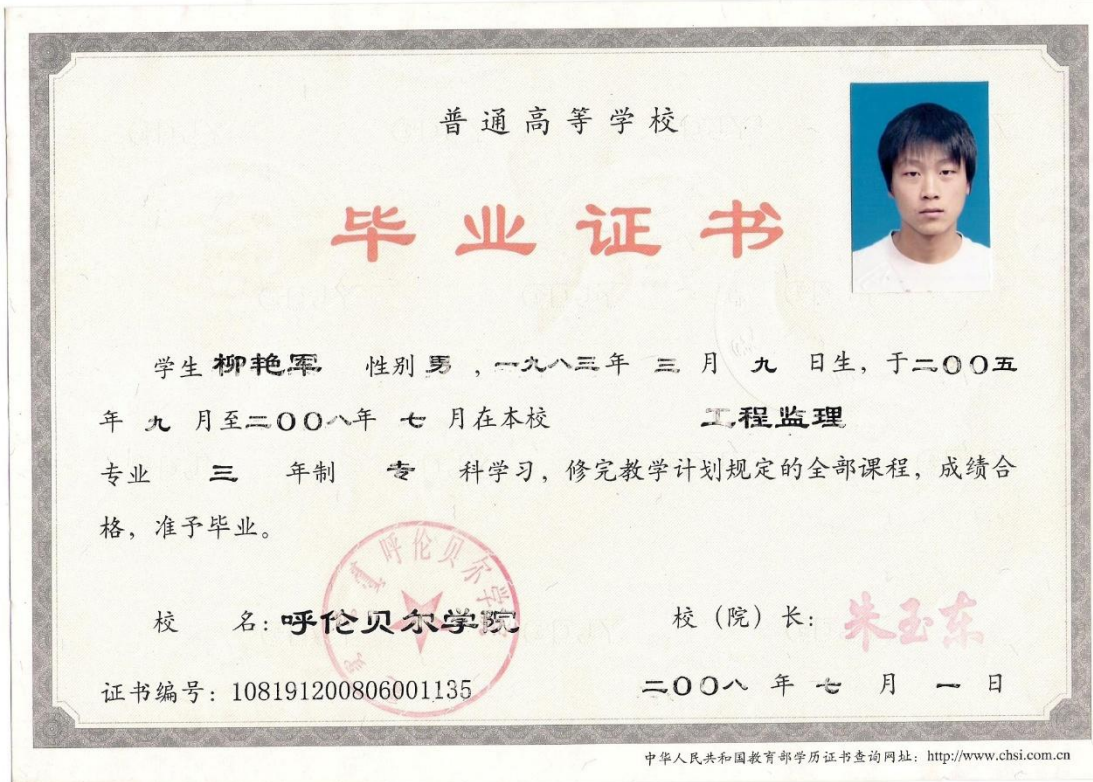 普通高等学校
毕业证书
学生 柳艳军 性别 男 ，一九八三年 三 月 九 日生，于二〇〇五
年 九 月至二〇〇八年 七 月在本校 工程监理
专业 三 年制 专 科学习，修完教学计划规定的全部课程，成绩合
格，准予毕业。
呼伦贝尔学院
校 名：呼伦贝尔学院 校（院）长：朱玉东
证书编号：108191200806001135 二〇〇八 年 七 月 一 日
中华人民共和国教育部学历证书查询网址：http://www.chsi.com.cn